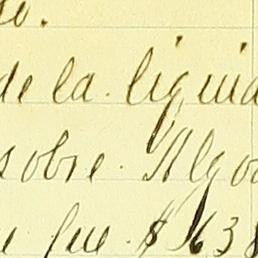 de la liquid
sobre Algo
que $ 638